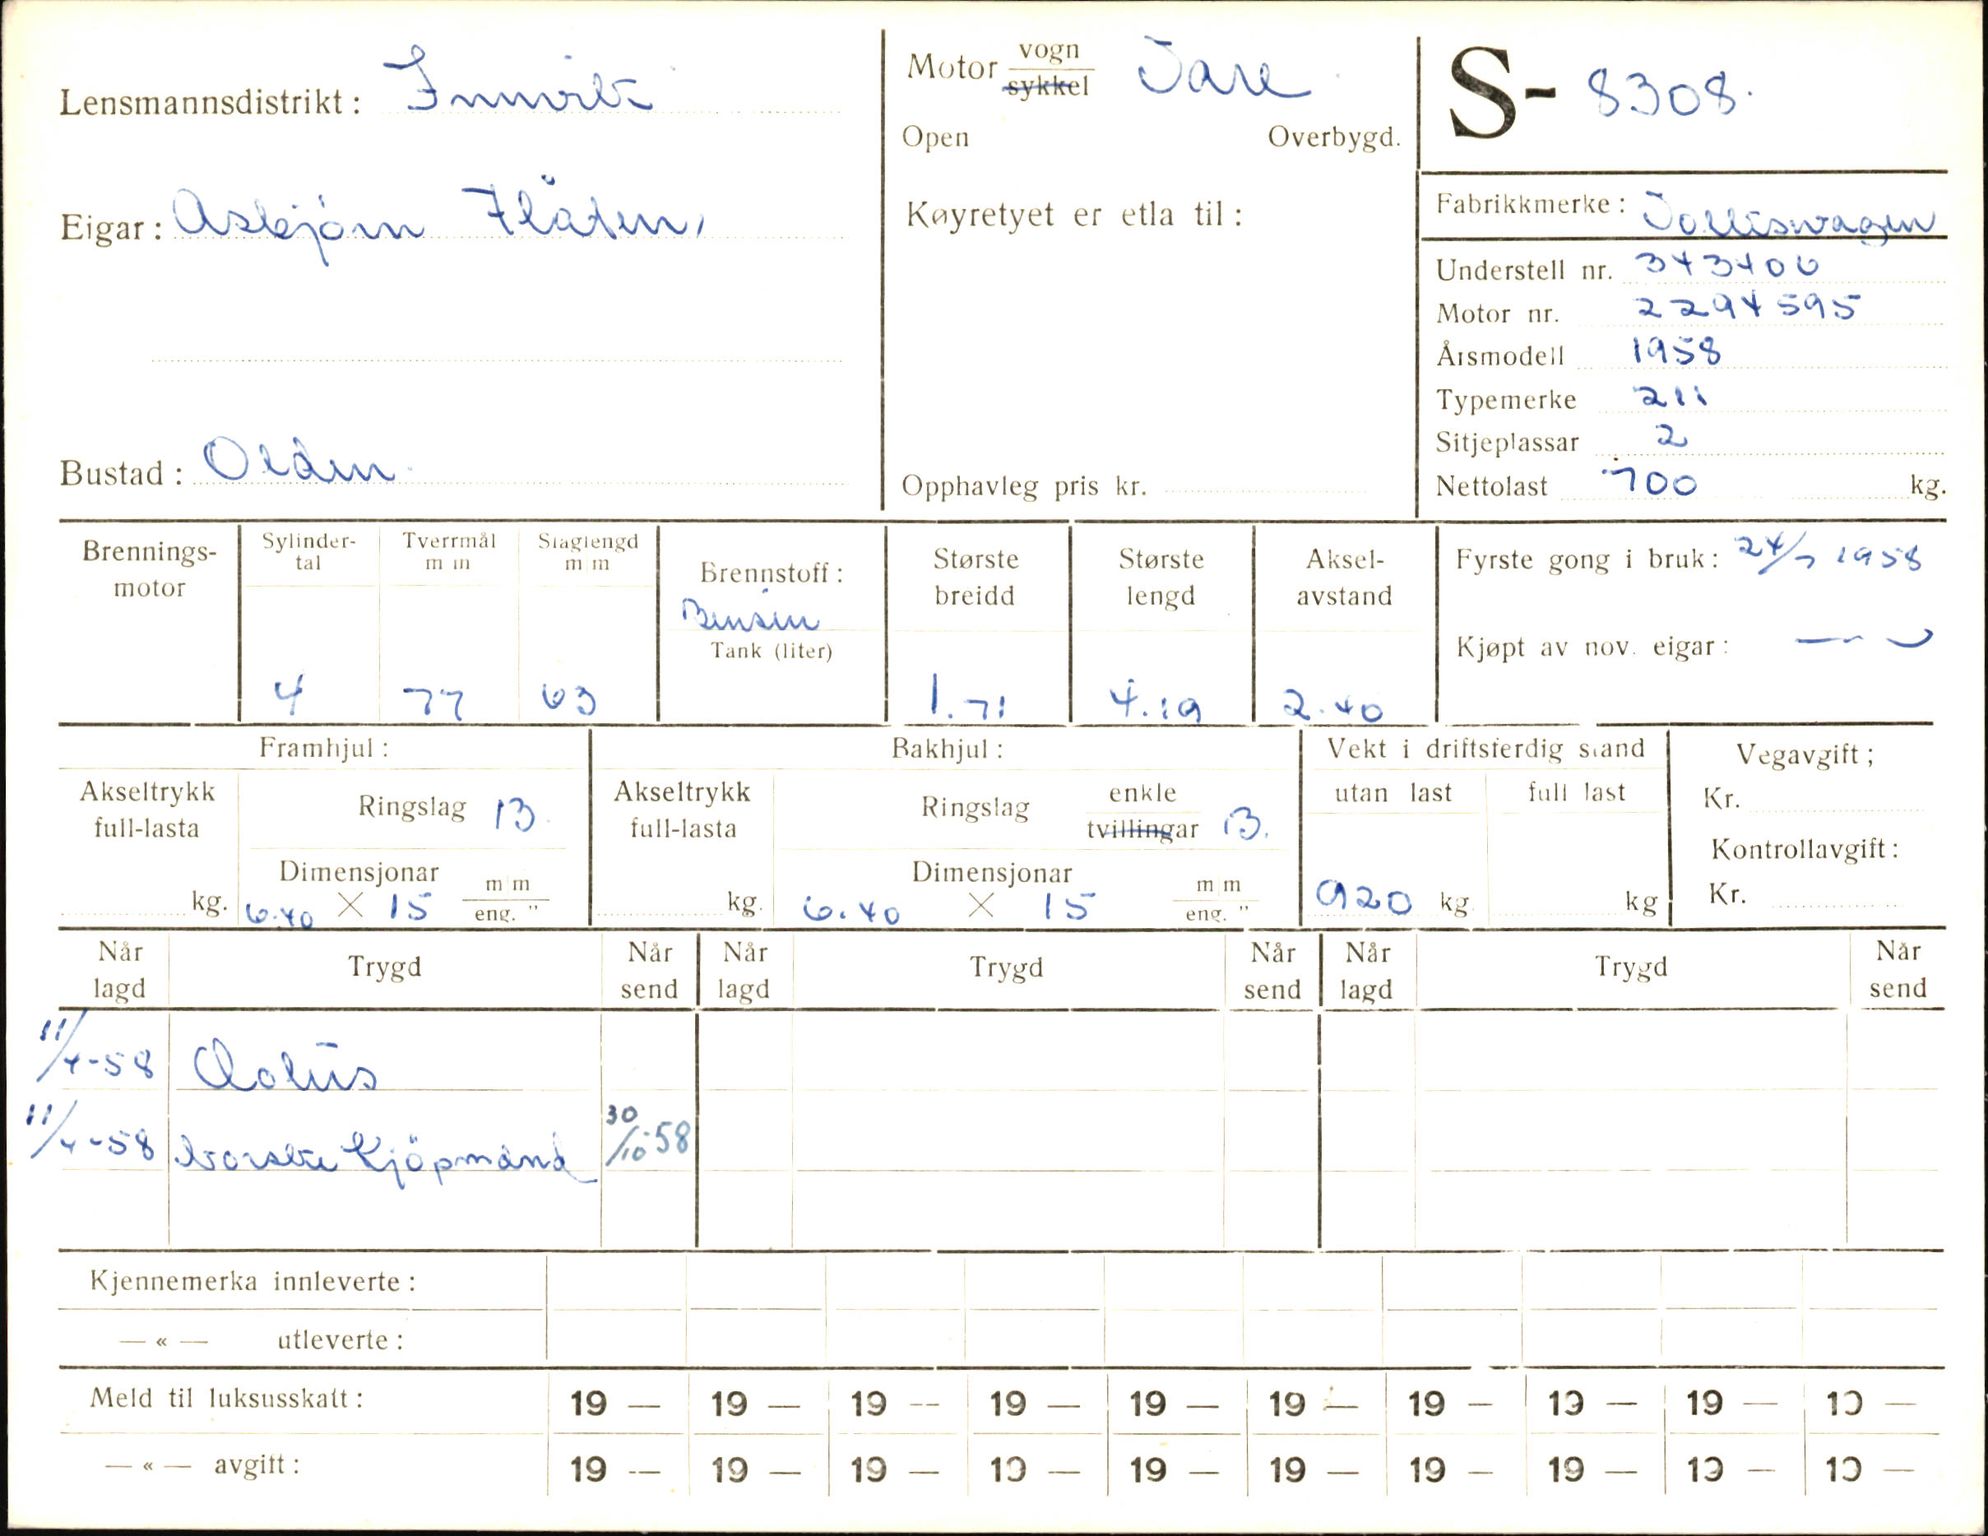 Lensmannsdistrikt: Innvik
Motor vogn sykkel Vare
S- 8308.
Open Overbygd.
Eigar: Asbjørn Flåten,
Køyretyet er etla til:
Fabrikkmerke: Volkswagen
Understell nr. 343406
Motor nr. 2294595
Årsmodell 1958
Typemerke 211
Sitjeplassar 2
Bustad: Olden
Opphavleg pris kr.
Nettolast 700 kg.
Brennings-motor
Sylinder-tal 4
Tverrmål m m 77
Slaglengd m m 63
Brennstoff: Bensin
Tank (liter)
Største breidd 1.71
Største lengd 4.19
Aksel-avstand 2.40
Fyrste gong i bruk: 24/7 1958
Kjøpt av nov. eigar: — " —
Framhjul:
Akseltrykk full-lasta kg.
Ringslag 13
Dimensjonar 6.40 × 15 m/m eng. "
Bakhjul:
Akseltrykk full-lasta kg.
Ringslag enkle tvillingar 13.
Dimensjonar 6.40 × 15 m/m eng. "
Vekt i driftsferdig stand
utan last 920 kg
full last kg
Vegavgift;
Kr.
Kontrollavgift:
Kr.
Når lagd Trygd Når send Når lagd Trygd Når send Når lagd Trygd Når send
11/4-58
11/4-58 Norske Kjøpmänd 30/10-58
Kjennemerka innleverte:
— « — utleverte:
Meld til luksusskatt: 19 — 19 — 19 — 19 — 19 — 19 — 19 — 19 — 19 — 19 —
— « — avgift: 19 — 19 — 19 — 19 — 19 — 19 — 19 — 19 — 19 — 19 —